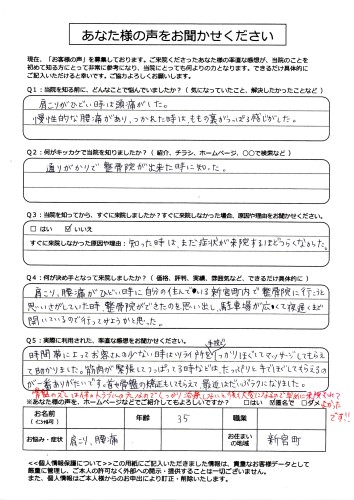 あなた様の声をお聞かせください
現在、「お客様の声」を募集しております。ご来院くださったあなた様の率直な感想が、当院のことを
初めて知る方にとって非常に参考になり、当院にとっても何よりの力となります。できるだけ具体的に
ご記入いただけると幸いです。ご協力よろしくお願いします。
Q1：当院を知る前に、どんなことで悩んでいましたか？（気になっていたこと、解決したかったことなど）
肩こりがひどい時は頭痛がした。
慢性的な腰痛があり、つかれた時は、ももの裏がつっぱる感じがした。
Q2：何がキッカケで当院を知りましたか？（紹介、チラシ、ホームページ、〇〇で検索など）
通りがかりで整骨院が出来た時に知った。
Q3：当院を知ってから、すぐに来院しましたか？すぐに来院しなかった場合、原因や理由をお聞かせください。
はい ☑ いいえ
すぐに来院しなかった原因や理由：知った時は、まだ症状が来院するほどつらくなかった。
Q4：何が決め手となって来院しましたか？（価格、評判、実績、雰囲気など、できるだけ具体的に）
肩こり、腰痛がひどい時に自分の住んでいる新宮町内で整骨院に行こうと
思いさがしていた時、整骨院ができたのを思い出し、駐車場が広くて夜遅くまで
開いているので行ってみようかと思った。
Q5：実際に利用された、率直な感想をお聞かせください。
時間帯によってお客さんの少ない時は
マッサージしてもらえ
て助かりました。筋肉が緊張してつっぱってる時などは、たっぷりと手でほぐしてもらえるの
が一番ありがたいです。首や骨盤の矯正もしてもらえて、最近はだいぶラクになりました。
※あなた様の声を、ホームページなどでご紹介してもよろしいですか？ はい 匿名で ダメ
お名前
（イニシャル可）
年齢
35
職業
お悩み・症状
肩こり、腰痛
お住まい
の地域
新宮町
＜＜個人情報保護について＞＞この用紙にご記入いただきました情報は、貴重なお客様データとして
厳重に管理し、ご本人の許可なく外部への開示・提供することは一切ございません。
また、個人情報はご本人様からのお申出により訂正・削除いたします。